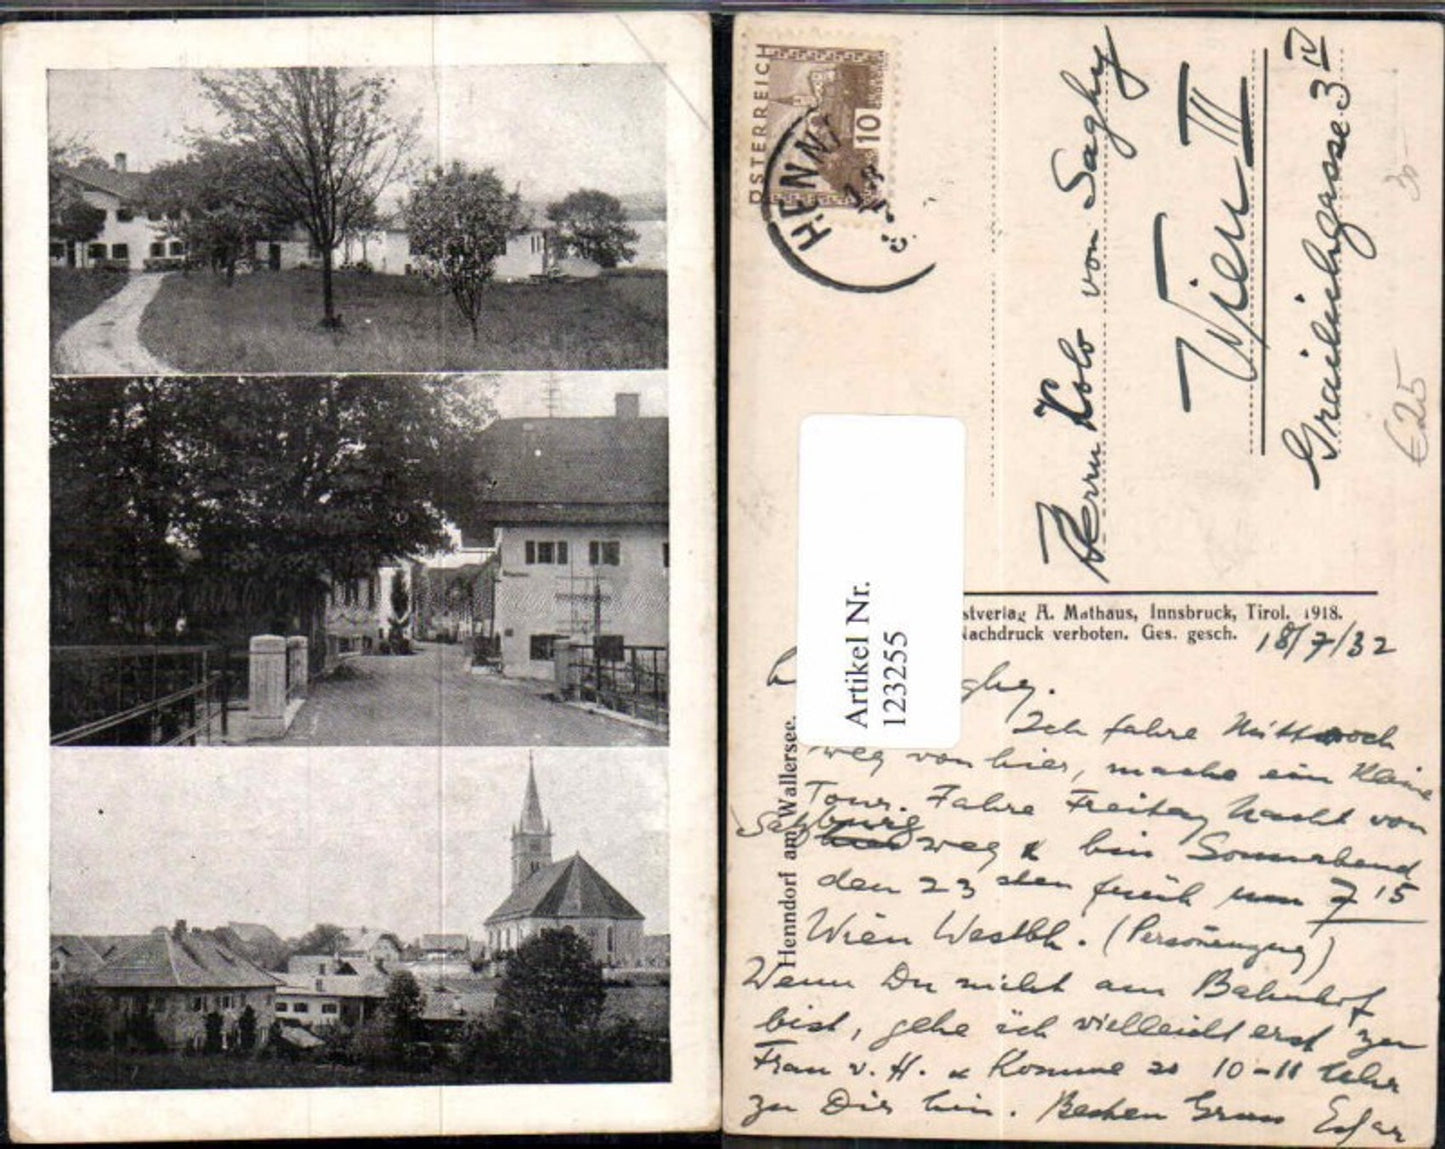 ÖSTERREICH
10
HENN
Herrn Kolo von Saghy
Wien III
Graileichgasse 3 IV
€25
Artikel Nr.
123255
stverlag A. Mathaus, Innsbruck, Tirol. 1918.
Nachdruck verboten. Ges. gesch.
Henndorf am Wallersee.
18/7/32
ghy.
Ich fahre Mittwoch
weg von hier, mache ein kleine
Tour. Fahre Freitag Nacht von
Salzburg weg & bin Sonnabend
den 23 sten früh um 7 15
Wien Westbh. (Personenzug)
Wenn Du nicht am Bahnhof
bist, gehe ich vielleicht erst zur
Frau v. H. & komme so 10-11 Uhr
zu Dir hin. Besten Gruss Edgar